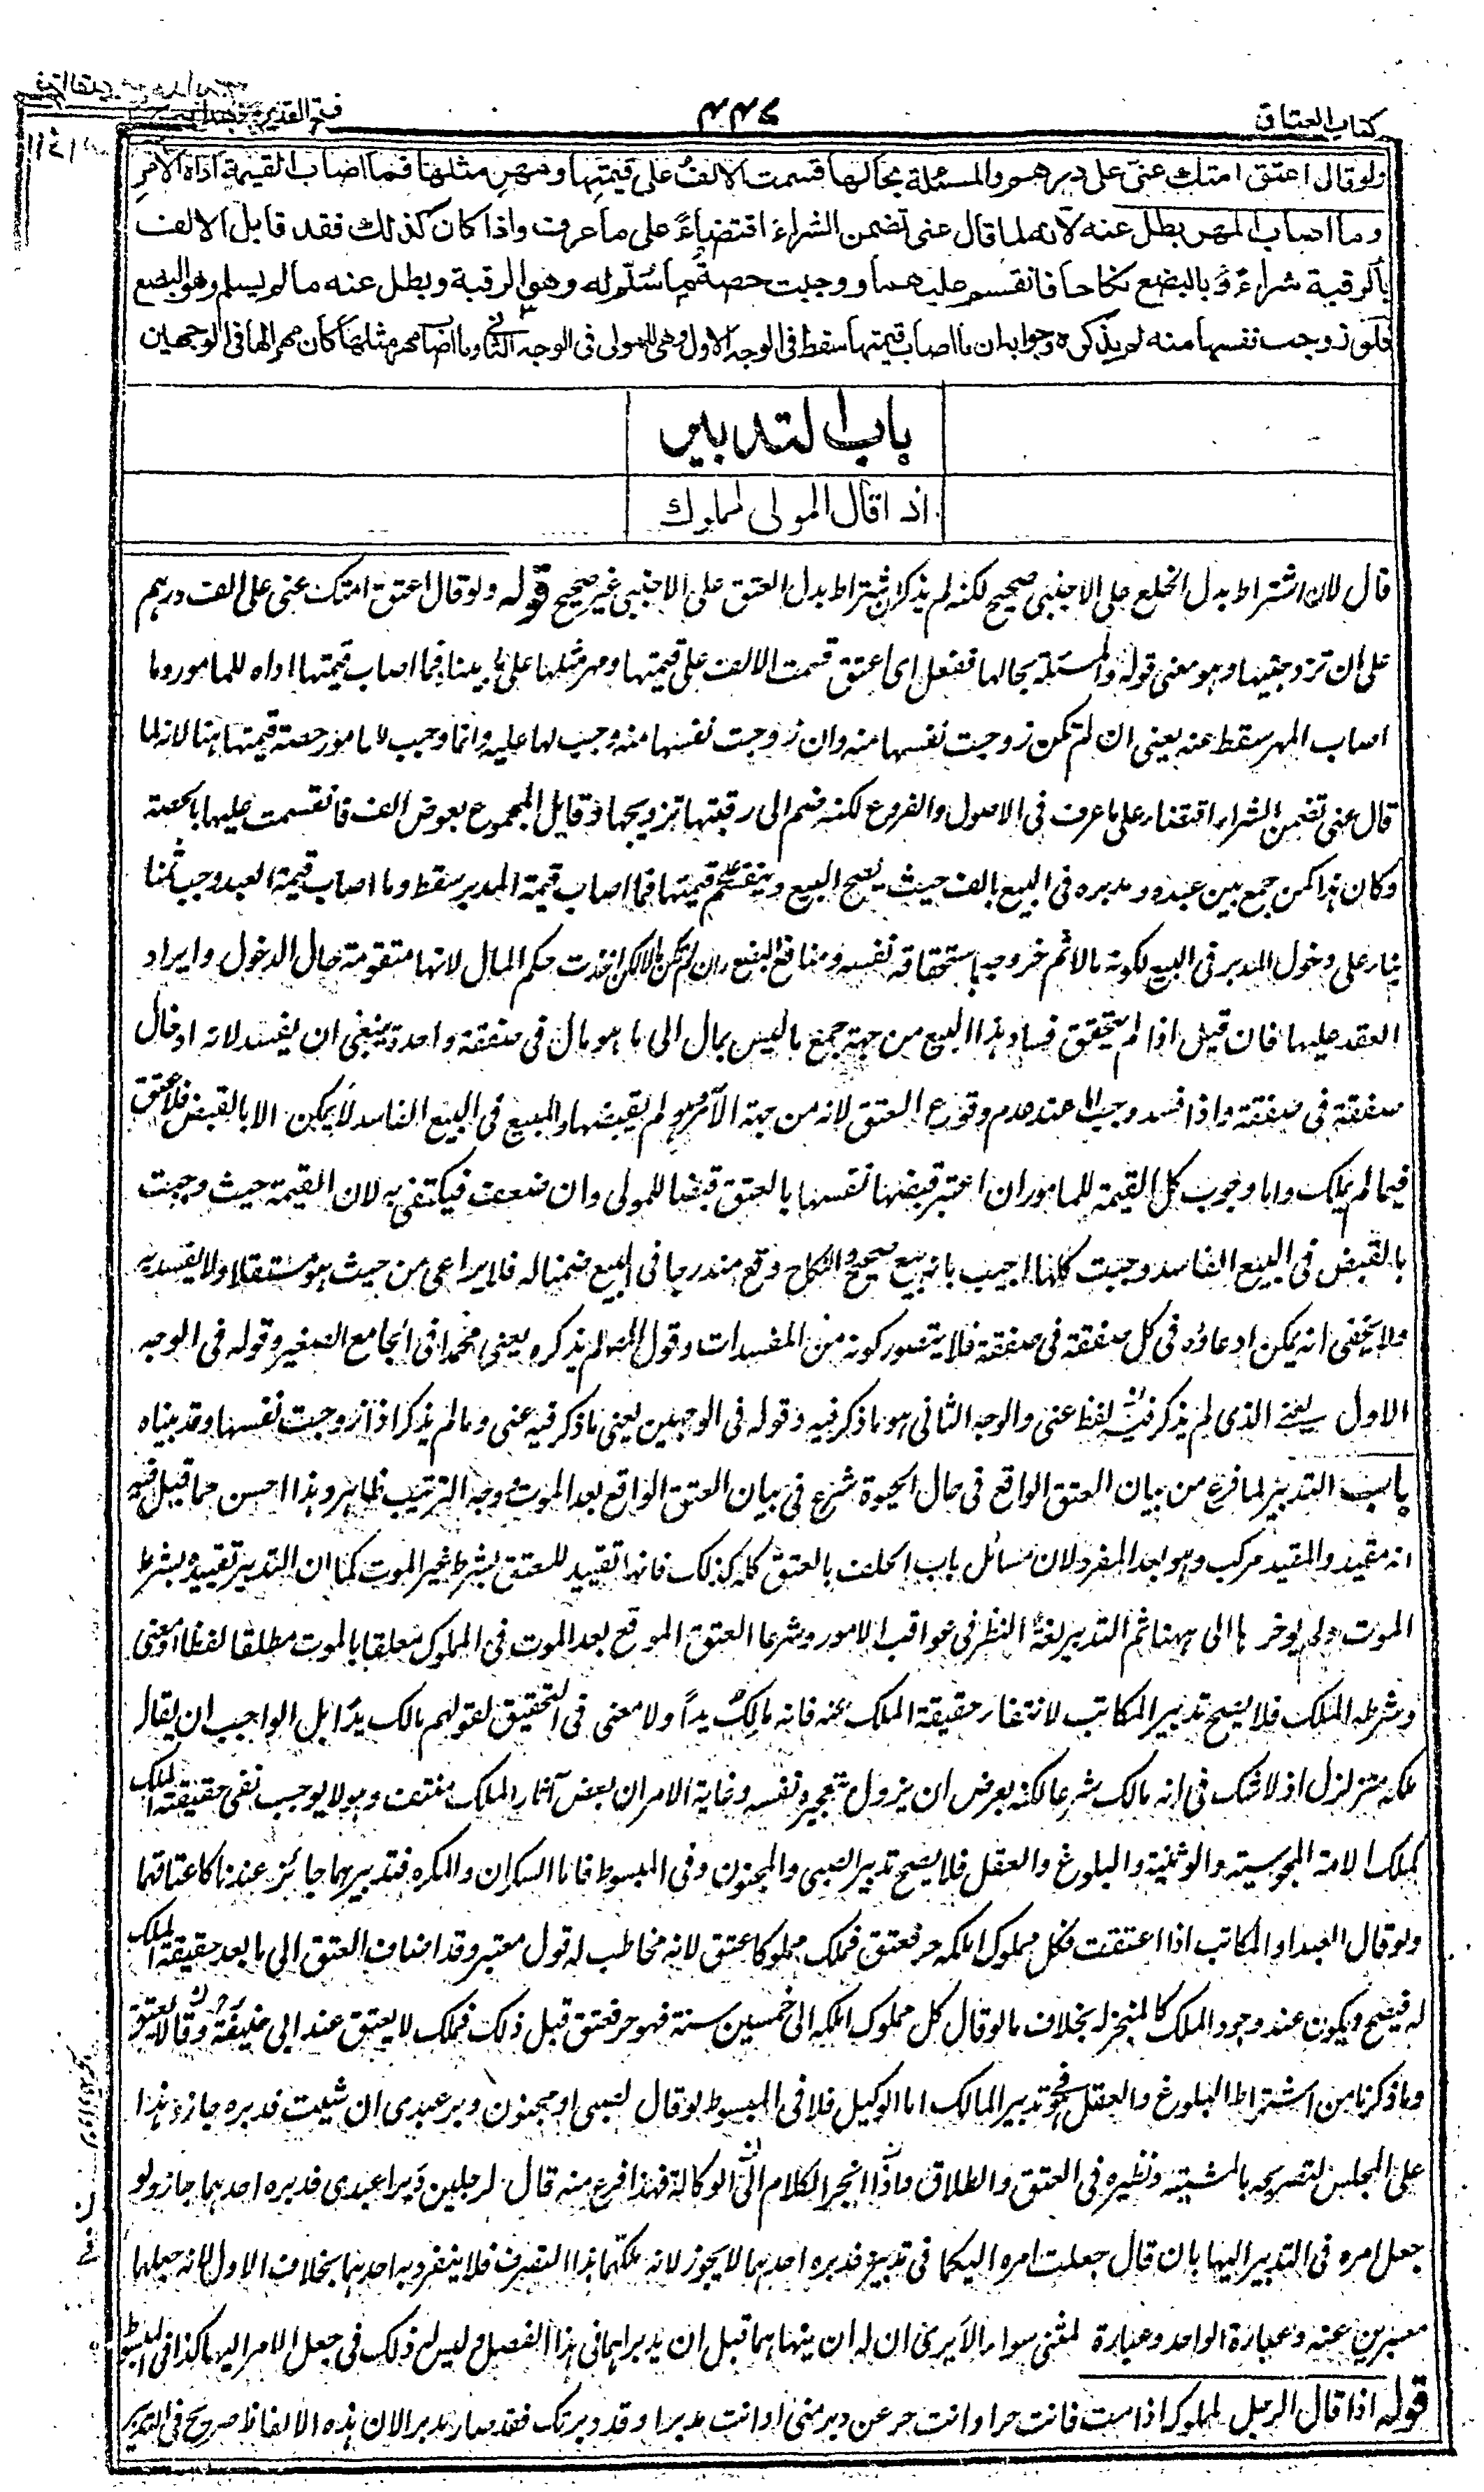 كتاب العتاق
٤٤٧
فتح القدير
ولو قال اعتق امتك عنى على درهم والمسئلة بحالها قسمت الالف على قيمتها ومهر مثلها فما اصاب القيمة اداه الآمر
وما اصاب المهر بطل عنه لانه لما قال عنى تضمن الشراء اقتضاءً على ما عرفت واذا كان كذلك فقد قابل الالف
بالرقبة شراءً وبالبضع نكاحا فانقسم عليهما ووجبت حصة ما سُلّم له وهو الرقبة وبطل عنه ما لم يسلم وهو البضع
فلو زوجت نفسها منه لم يذكره وجوابه ان ما اصاب قيمتها سقط فى الوجه الاول وهى للمولى فى الوجه الثانى وما اصاب مهر مثلها كان مهرا لها فى الوجهين
باب التدبير
اذا قال المولى لمملوك
قال لان اشتراط بدل الخلع على الاجنبى صحيح لكنه لم يذكر ان اشتراط بدل العتق على الاجنبى غير صحيح قوله ولو قال اعتق امتك عنى على الف درهم
على ان تزوجنيها وهو معنى قوله والمسئلة بحالها ففعل اى اعتق قسمت الالف على قيمتها ومهر مثلها على ما بينا فما اصاب قيمتها اداه للمامور وما
اصاب المهر سقط عنه يعنى ان لم تكن زوجت نفسها منه وان زوجت نفسها منه وجب لها عليه وانما وجب للمامور حصة قيمتها هنا لانه لما
قال عنى تضمن الشراء اقتضاء على ما عرف فى الاصول والفروع لكنه ضم الى رقبتها تزويجها وقابل المجموع بعوض الف فانقسمت عليها بالحصة
وكان هذا كمن جمع بين عبده ومدبره فى البيع بالف حيث يصح البيع وينقسم على قيمتها فما اصاب قيمة المدبر سقط وما اصاب قيمة العبد وجب ثمنا
بناء على دخول المدبر فى البيع لكونه مالا ثم خروجه باستحقاقه نفسه ومنافع البضع وان لم تكن مالا لكن اخذت حكم المال لانها متقومة حال الدخول وايراد
العقد عليها فان قيل اذا لم يتحقق فساد هذا البيع من جهة جمع ما ليس بمال الى ما هو مال فى صفقة واحدة ينبغى ان يفسد لانه ادخال
صفقة فى صفقة واذا فسد وجب عدم وقوع العتق لانه من جهة الآمر وهو لم يقبضها والمبيع فى البيع الفاسد لا يملك الا بالقبض فلا عتق
فيما لم يملك واما وجوب كل القيمة للمامور ان اعتبر قبضها نفسها بالعتق قبضا للمولى وان ضعف فيكتفى به لان القيمة حيث وجبت
بالقبض فى البيع الفاسد وجبت كلها اجيب بانه بيع صحيح والنكاح وقع مندرجا فى البيع ضمنا له فلا يراعى من حيث هو مستقلا ولا يفسد به
ولا يخفى انه يمكن ادعاؤه فى كل صفقة فى صفقة فلا يتصور كونه من المفسدات وقول المص لم يذكره يعنى محمدا فى الجامع الصغير وقوله فى الوجه
الاول يعنى الذى لم يذكر فيه لفظ عنى والوجه الثانى هو ما ذكر فيه وقوله فى الوجهين يعنى ما ذكر فيه عنى وما لم يذكر اذا زوجت نفسها وقد بيناه
باب التدبير لما فرغ من بيان العتق الواقع فى حال الحيوة شرع فى بيان العتق الواقع بعد الموت ووجه الترتيب ظاهر وهذا احسن مما قيل فيه
انه مقيد والمقيد مركب وهو بعد المفرد لان مسائل باب الحلف بالعتق كله كذلك فانها تقييد للعتق بشرط غير الموت كما ان التدبير تقييده بشرط
الموت ولم يؤخرها الى ههنا ثم التدبير لغةً النظر فى عواقب الامور وشرعا العتق الموقع بعد الموت فى المملوك معلقا بالموت مطلقا لفظا او معنى
وشرطه الملك فلا يصح تدبير المكاتب لانتفاء حقيقة الملك عنه فانه مالكٌ يداً ولا معنى فى التحقيق لقولهم مالك يدًا بل الواجب ان يقال
ملكه متزلزل اذ لا شك فى انه مالك شرعا لكنه بعرض ان يزول بتعجيزه نفسه وغاية الامر ان بعض آثار الملك منتف وهو لا يوجب نفى حقيقة الملك
كملك الامة المجوسية والوثنية والبلوغ والعقل فلا يصح تدبير الصبى والمجنون وفى المبسوط فاما السكران والمكره فتدبيرهما جائز عندنا كاعتاقهما
ولو قال العبد او المكاتب اذا اعتقت فكل مملوك املكه حر فعتق فملك مملوكا عتق لانه مخاطب له قول معتبر وقد اضاف العتق الى ما بعد حقيقة الملك
له فيصح ويكون عند وجود الملك كالمنجز له بخلاف ما لو قال كل مملوك املكه الى خمسين سنة فهو حر فعتق قبل ذلك فملك لا يعتق عند ابى حنيفة وقالا يعتق
وما ذكرنا من اشتراط البلوغ والعقل فى تدبير المالك اما الوكيل فلا فى المبسوط لو قال لصبى او مجنون دبر عبدى ان شئت فدبره جاز وهذا
على المجلس لتصريحه بالمشية ونظيره فى العتق والطلاق واذا انجر الكلام الى الوكالة فهذا فرع منه قال لرجلين دبرا عبدى فدبره احدهما جاز ولو
جعل امره فى التدبير اليهما بان قال جعلت امره اليكما فى تدبيره فدبره احدهما لا يجوز لانه ملكهما هذا التصرف فلا ينفرد به احدهما بخلاف الاول لانه جعلهما
معبرين عنه وعبارة الواحد وعبارة المثنى سواء الا يرى ان له ان ينهاهما قبل ان يدبراه فى هذا الفصل وليس له ذلك فى جعل الامر اليهما كذا فى المبسوط
قوله اذا قال الرجل لمملوكه اذا مت فانت حر او انت حر عن دبر منى او انت مدبر او قد دبرتك فقد صار مدبرا لان هذه الالفاظ صريح فى التدبير